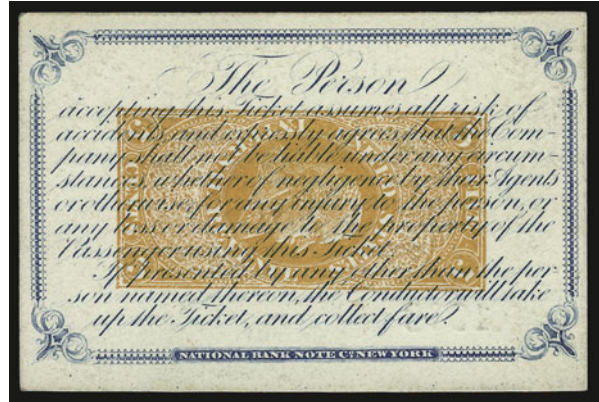 The Person
accepting this Ticket assumes all risk of
accidents and expressly agrees that the Com-
pany shall not be liable under any circum-
stances whether of negligence by their Agents
or otherwise for any injury to the person, or
any loss or damage to the property of the
Passenger using this Ticket.
If presented by any other than the per-
son named thereon, the Conductor will take
up the Ticket, and collect fare.
NATIONAL BANK NOTE Co. NEW YORK